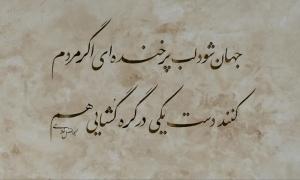 جهان شود لب پر خنده‌ای اگر مردم
کنند دست یکی در گره گشایی هم